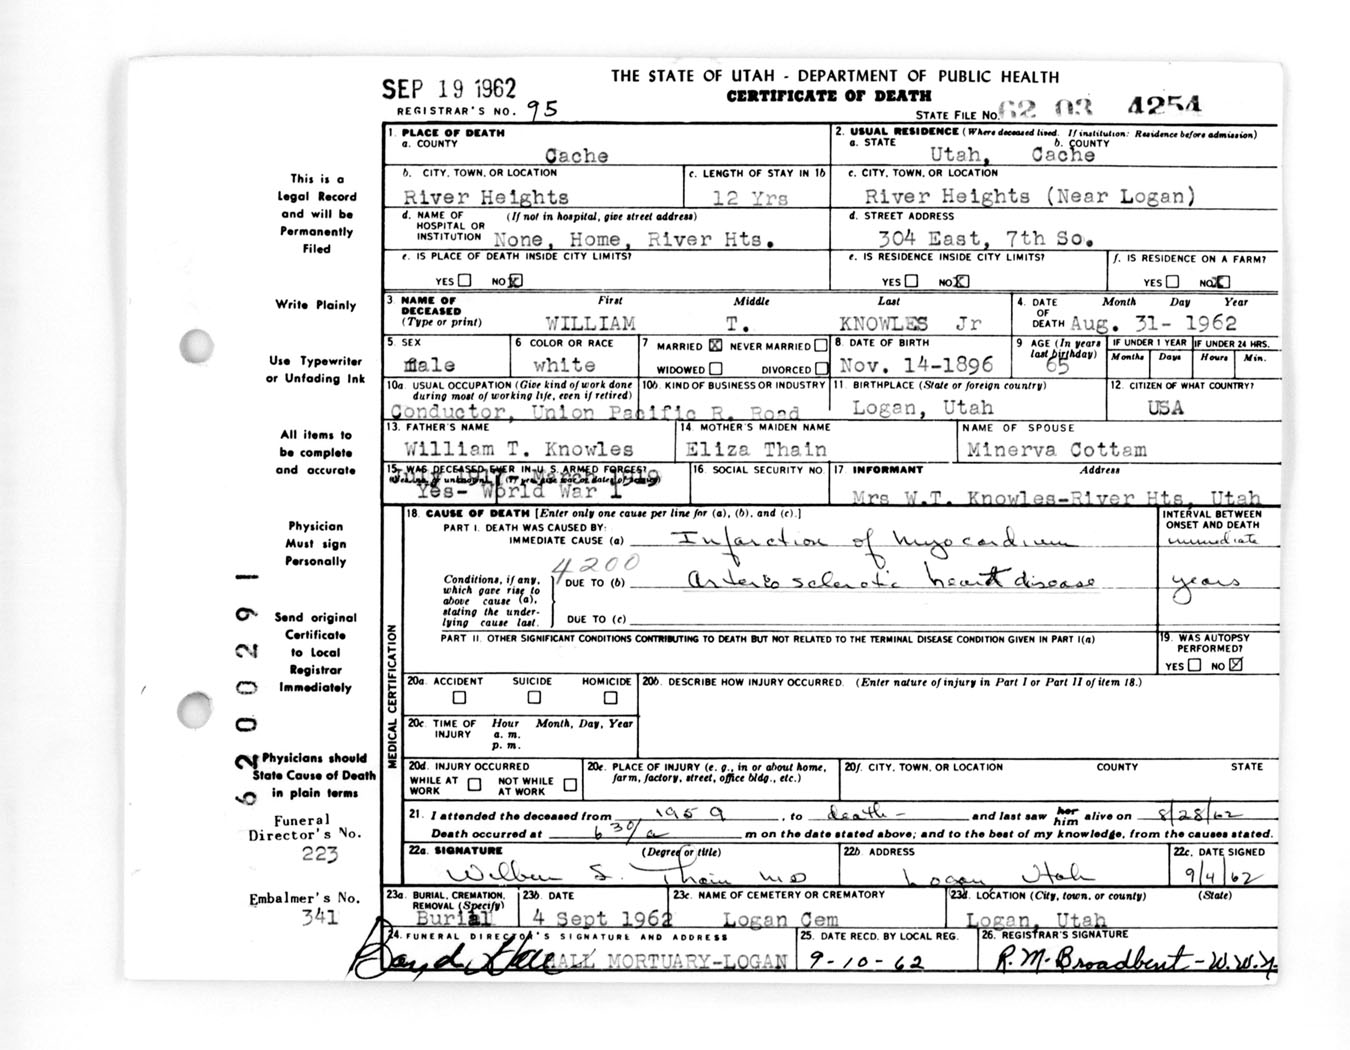 SEP 19 1962
THE STATE OF UTAH - DEPARTMENT OF PUBLIC HEALTH
CERTIFICATE OF DEATH
REGISTRAR'S NO. 95
STATE FILE No. 62 03 4254
This is a
Legal Record
and will be
Permanently
Filed
Write Plainly
Use Typewriter
or Unfading Ink
All items to
be complete
and accurate
Physician
Must sign
Personally
Send original
Certificate
to Local
Registrar
Immediately
Physicians should
State Cause of Death
in plain terms
Funeral
Director's No.
223
Embalmer's No.
341
6200291
1. PLACE OF DEATH
a. COUNTY
Cache
2. USUAL RESIDENCE (Where deceased lived. If institution: Residence before admission)
a. STATE b. COUNTY
Utah, Cache
b. CITY, TOWN, OR LOCATION
River Heights
c. LENGTH OF STAY IN 1b
12 Yrs
c. CITY, TOWN, OR LOCATION
River Heights (Near Logan)
d. NAME OF (If not in hospital, give street address)
HOSPITAL OR
INSTITUTION None, Home, River Hts.
d. STREET ADDRESS
304 East, 7th So.
e. IS PLACE OF DEATH INSIDE CITY LIMITS?
YES NO X
e. IS RESIDENCE INSIDE CITY LIMITS?
YES NO X
f. IS RESIDENCE ON A FARM?
YES NO X
3. NAME OF First Middle Last
DECEASED
(Type or print) WILLIAM T. KNOWLES Jr
4. DATE Month Day Year
OF
DEATH Aug. 31- 1962
5. SEX
male
6. COLOR OR RACE
white
7. MARRIED X NEVER MARRIED
WIDOWED DIVORCED
8. DATE OF BIRTH
Nov. 14-1896
9. AGE (In years
last birthday)
65
IF UNDER 1 YEAR IF UNDER 24 HRS.
Months Days Hours Min.
10a. USUAL OCCUPATION (Give kind of work done
during most of working life, even if retired)
10b. KIND OF BUSINESS OR INDUSTRY
Conductor, Union Pacific R. Road
11. BIRTHPLACE (State or foreign country)
Logan, Utah
12. CITIZEN OF WHAT COUNTRY?
USA
13. FATHER'S NAME
William T. Knowles
14. MOTHER'S MAIDEN NAME
Eliza Thain
NAME OF SPOUSE
Minerva Cottam
15. WAS DECEASED EVER IN U. S. ARMED FORCES?
1917- March 1919
Yes- World War 1
16. SOCIAL SECURITY NO.
17. INFORMANT Address
Mrs W.T. Knowles-River Hts, Utah
MEDICAL CERTIFICATION
18. CAUSE OF DEATH [Enter only one cause per line for (a), (b), and (c).]
INTERVAL BETWEEN
ONSET AND DEATH
PART I. DEATH WAS CAUSED BY:
IMMEDIATE CAUSE (a) Infarction of myocardium immediate
4200
Conditions, if any,
which gave rise to
above cause (a),
stating the under-
lying cause last.
DUE TO (b) Arteriosclerotic heart disease years
DUE TO (c)
PART II. OTHER SIGNIFICANT CONDITIONS CONTRIBUTING TO DEATH BUT NOT RELATED TO THE TERMINAL DISEASE CONDITION GIVEN IN PART I(a)
19. WAS AUTOPSY
PERFORMED?
YES NO X
20a. ACCIDENT SUICIDE HOMICIDE
20b. DESCRIBE HOW INJURY OCCURRED. (Enter nature of injury in Part I or Part II of item 18.)
20c. TIME OF Hour Month, Day, Year
INJURY a. m.
p. m.
20d. INJURY OCCURRED
WHILE AT WORK NOT WHILE AT WORK
20e. PLACE OF INJURY (e. g., in or about home,
farm, factory, street, office bldg., etc.)
20f. CITY, TOWN, OR LOCATION COUNTY STATE
21. I attended the deceased from 1959, to death- and last saw her him alive on 8/28/62
Death occurred at 6 30/a m on the date stated above; and to the best of my knowledge, from the causes stated.
22a. SIGNATURE (Degree or title)
Wilber S. Thain MD
22b. ADDRESS
Logan Utah
22c. DATE SIGNED
9/4/62
23a. BURIAL, CREMATION,
REMOVAL (Specify)
Burial
23b. DATE
4 Sept 1962
23c. NAME OF CEMETERY OR CREMATORY
Logan Cem
23d. LOCATION (City, town, or county) (State)
Logan, Utah
24. FUNERAL DIRECTOR'S SIGNATURE AND ADDRESS
Boyd Hall HALL MORTUARY-LOGAN
25. DATE RECD. BY LOCAL REG.
9-10-62
26. REGISTRAR'S SIGNATURE
R. M. Broadbent - W.W.